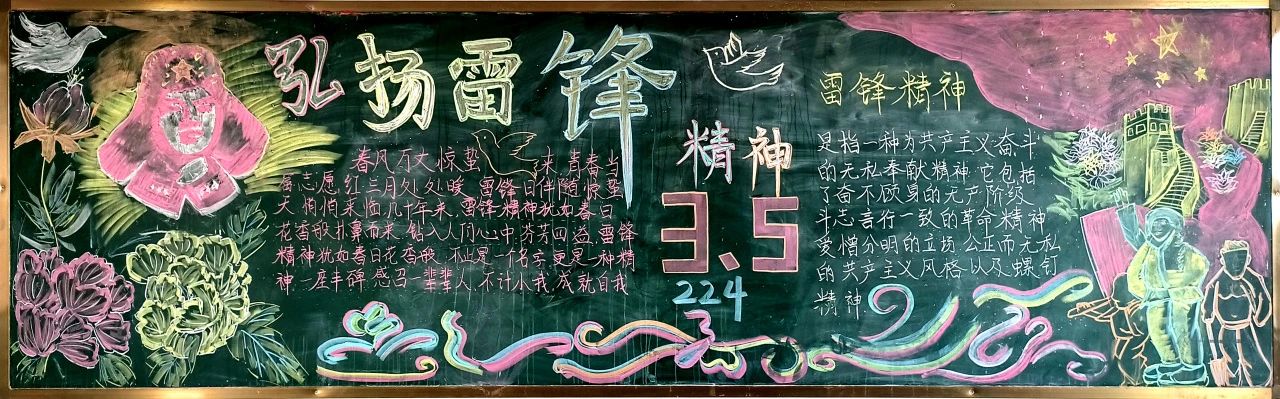 弘扬雷锋
精神
3、5
224
春风万丈惊蛰来,青春当
志愿红三月处处暖,雷锋日伴随惊蛰
天悄悄来临几十年来,雷锋精神犹如春日
花香般扑鼻而来,钻入人们心中,芬芳四溢,雷锋
精神犹如春日花香般,不止是一个名字更是一种精
神一座丰碑,感召一辈辈人,不计小我,成就自我
雷锋精神
是指一种为共产主义奋斗
的无私奉献精神,它包括
了奋不顾身的无产阶级
斗志言行一致的革命精神
爱憎分明的立场,公正而无私
的共产主义风格以及螺钉
精神